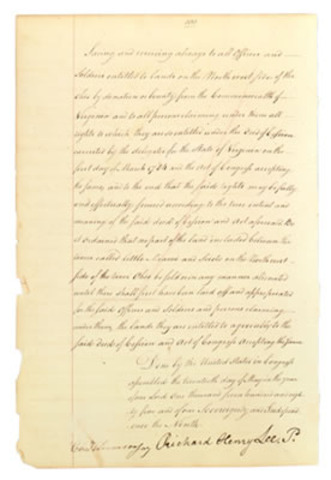 Saving and reserving always to all Officers and
Soldiers entitled to lands on the Northwest side of the
Ohio by donation or bounty from the Commonwealth of
Virginia and to all persons claiming under them all
rights to which they are entitled under the Deed of Cession
executed by the delegates for the State of Virginia on the
first day of March 1784 and the Act of Congress accepting
the same, and to the end that the said rights may be fully
and effectually secured according to the true intent and
meaning of the said deed of Cession and Act aforesaid Be
it Ordained that no part of the land included between the
rivers called little Miami and Sciota on the Northwest
side of the river Ohio be sold or in any manner alienated
until there shall first have been laid off and appropriated
for the said Officers and Soldiers and persons claiming
under them, the lands they are entitled to agreeably to the
said deed of Cession and Act of Congress accepting the same
Done by the United States in Congress
assembled the twentieth day of May in the year
of our Lord one thousand seven hundred and eighty
five and of our Sovereignty and Independence
the Ninth
Chas Thomson Secy Richard Henry Lee. P.